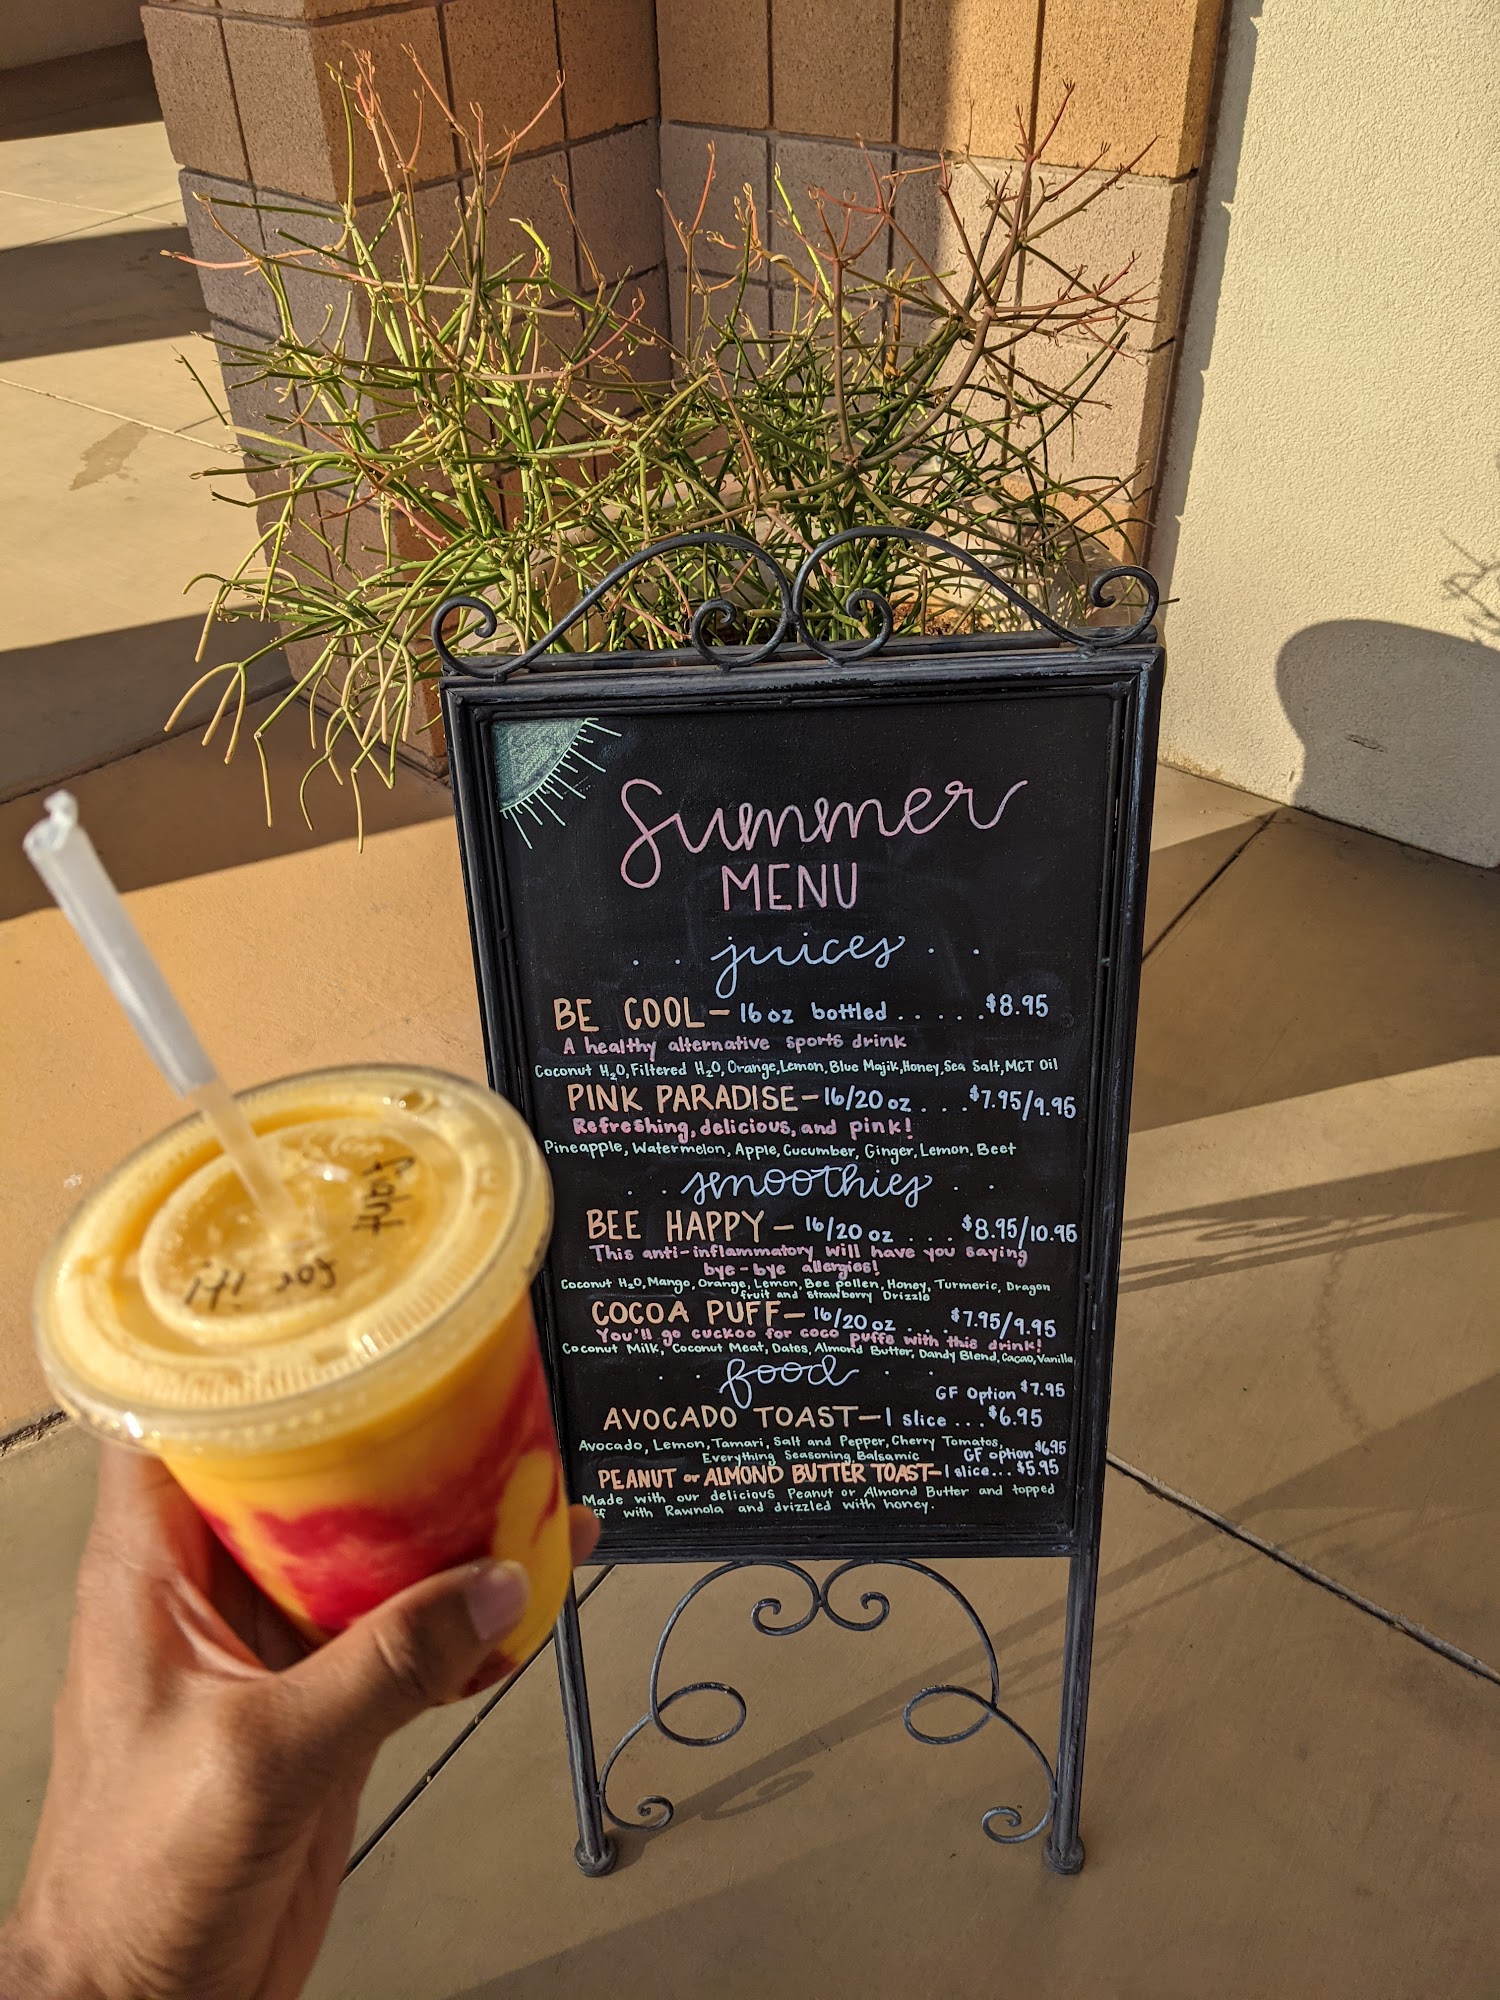 Summer
MENU
. . juices . .
BE COOL – 16 oz bottled . . . . . $8.95
A healthy alternative sports drink
Coconut H₂O, Filtered H₂O, Orange, Lemon, Blue Majik, Honey, Sea Salt, MCT Oil
PINK PARADISE – 16/20 oz . . . $7.95/9.95
Refreshing, delicious, and pink!
Pineapple, Watermelon, Apple, Cucumber, Ginger, Lemon, Beet
. . smoothies . .
BEE HAPPY – 16/20 oz . . . $8.95/10.95
This anti-inflammatory will have you saying
bye-bye allergies!
Coconut H₂O, Mango, Orange, Lemon, Bee pollen, Honey, Turmeric, Dragon
fruit and Strawberry Drizzle
COCOA PUFF – 16/20 oz . . . $7.95/9.95
You'll go cuckoo for coco puffs with this drink!
Coconut Milk, Coconut Meat, Dates, Almond Butter, Dandy Blend, Cacao, Vanilla
. . food . .
GF Option $7.95
AVOCADO TOAST – 1 slice ... $6.95
Avocado, Lemon, Tamari, Salt and Pepper, Cherry Tomatos,
Everything Seasoning, Balsamic
GF option $6.95
PEANUT or ALMOND BUTTER TOAST – 1 slice... $5.95
Made with our delicious Peanut or Almond Butter and topped
ff with Rawnola and drizzled with honey.
for it!